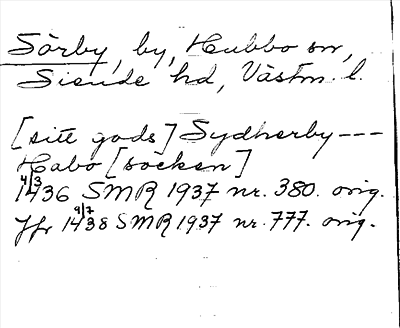 Sörby, by, Hubbo sn,
Siende hd, Västm. l.
[sitt gods] Sydherby ---
Habo [socken]
4/3 1436 SMR 1937 nr. 380. orig.
Jfr 9/7 1438 SMR 1937 nr. 777. orig.